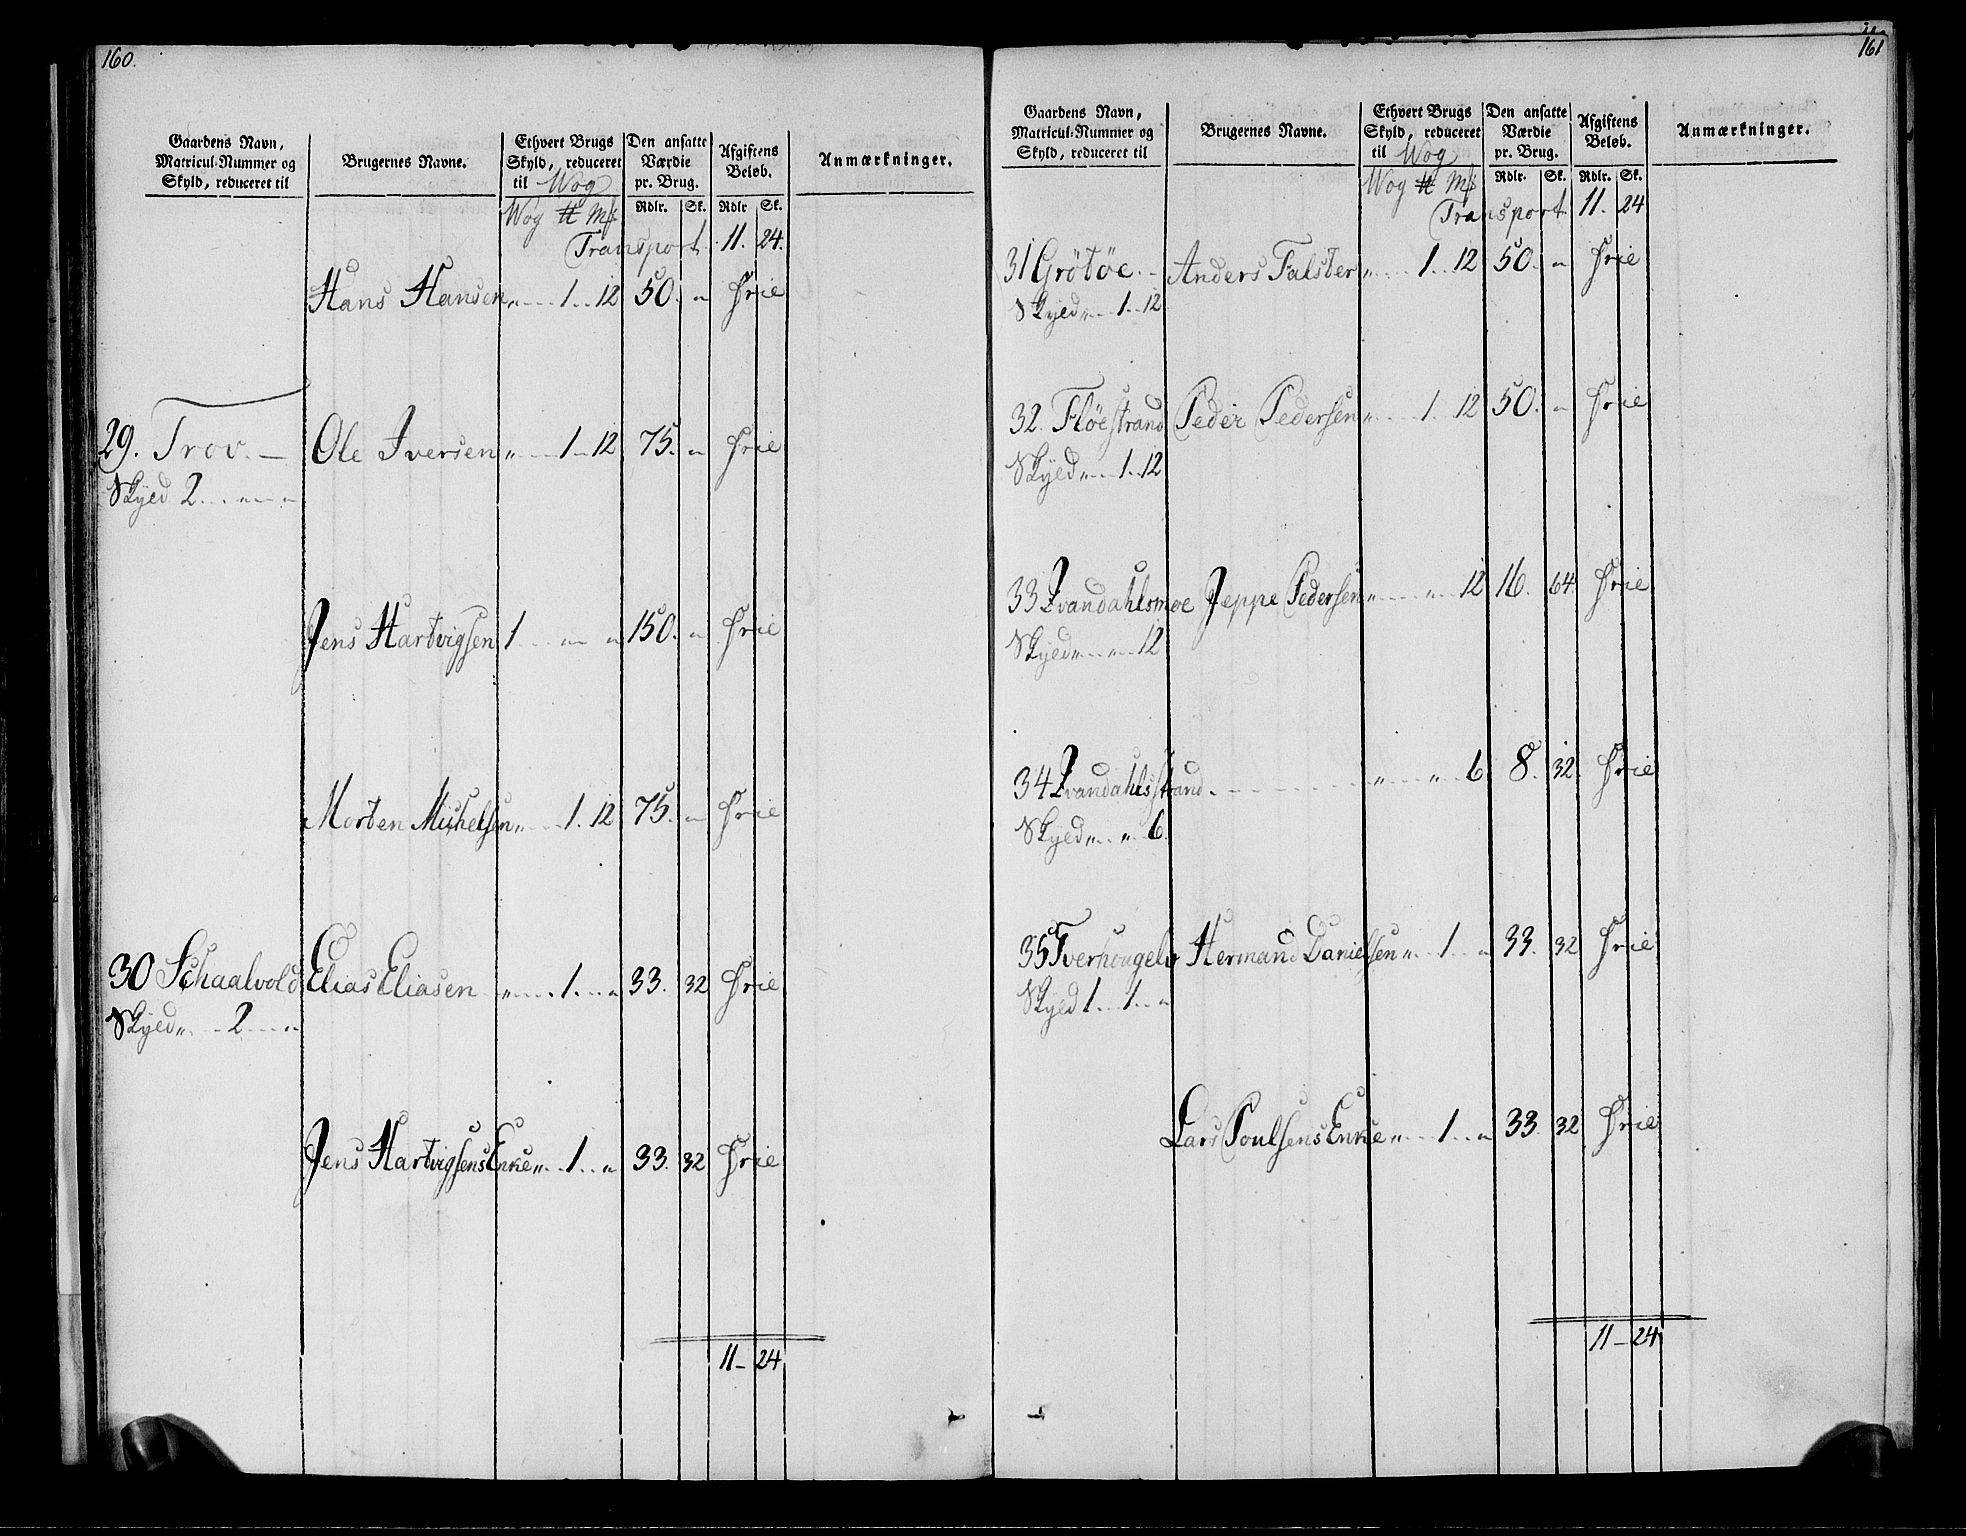 160.
Gaardens Navn, Matricul-Nummer og Skyld, reduceret til
Brugernes Navne.
Ethvert Brugs Skyld, reduceret til Wog
Den ansatte Værdie pr. Brug.
Afgiftens Beløb.
Anmærkninger.
Wog ℔ Mk Rdlr. Sk. Rdlr Sk.
Transport 11. 24.
Hans Hansen „ 1 12 50. „ Frie
29. Trov. Ole Iversen „ 1 12 75. „ Frie
Skyld 2 „ „
Jens Hartvigsen 1 „ „ 150. „ Frie
Morten Michelsen „ 1. 12 75. „ Frie
30 Schaalvold Elias Eliasen „ 1. „ 33. 32 Frie
Skyld „ 2 „
Jens Hartvigsens Enke „ 1 „ 33. 32 Frie
11 – 24
161
Gaardens Navn, Matricul-Nummer og Skyld, reduceret til
Brugernes Navne.
Ethvert Brugs Skyld, reduceret til Wog
Den ansatte Værdie pr. Brug.
Afgiftens Beløb.
Anmærkninger.
Wog ℔ Mk Rdlr. Sk. Rdlr. Sk.
Transport 11. 24
31 Grötöe. Anders Falster „ 1 12 50. „ Frie
Skyld „ 1 12
32. Flöestrand Peder Pedersen „ 1 12 50. „ Frie
Skyld „ 1 12
33 Ivandahlsmoe Jeppe Pedersen „ „ 12 16. 64. Frie
Skyld „ „ 12
34 Ivandahlsstrand „ „ 6 8. 32. Frie
Skyld „ „ 6.
35 Tverhougelv Hermand Danielsen „ 1 „ 33. 32 Frie
Skyld 1 1 „
Lars Poulsens Enke „ 1 „ 33. 32 Frie
11 – 24